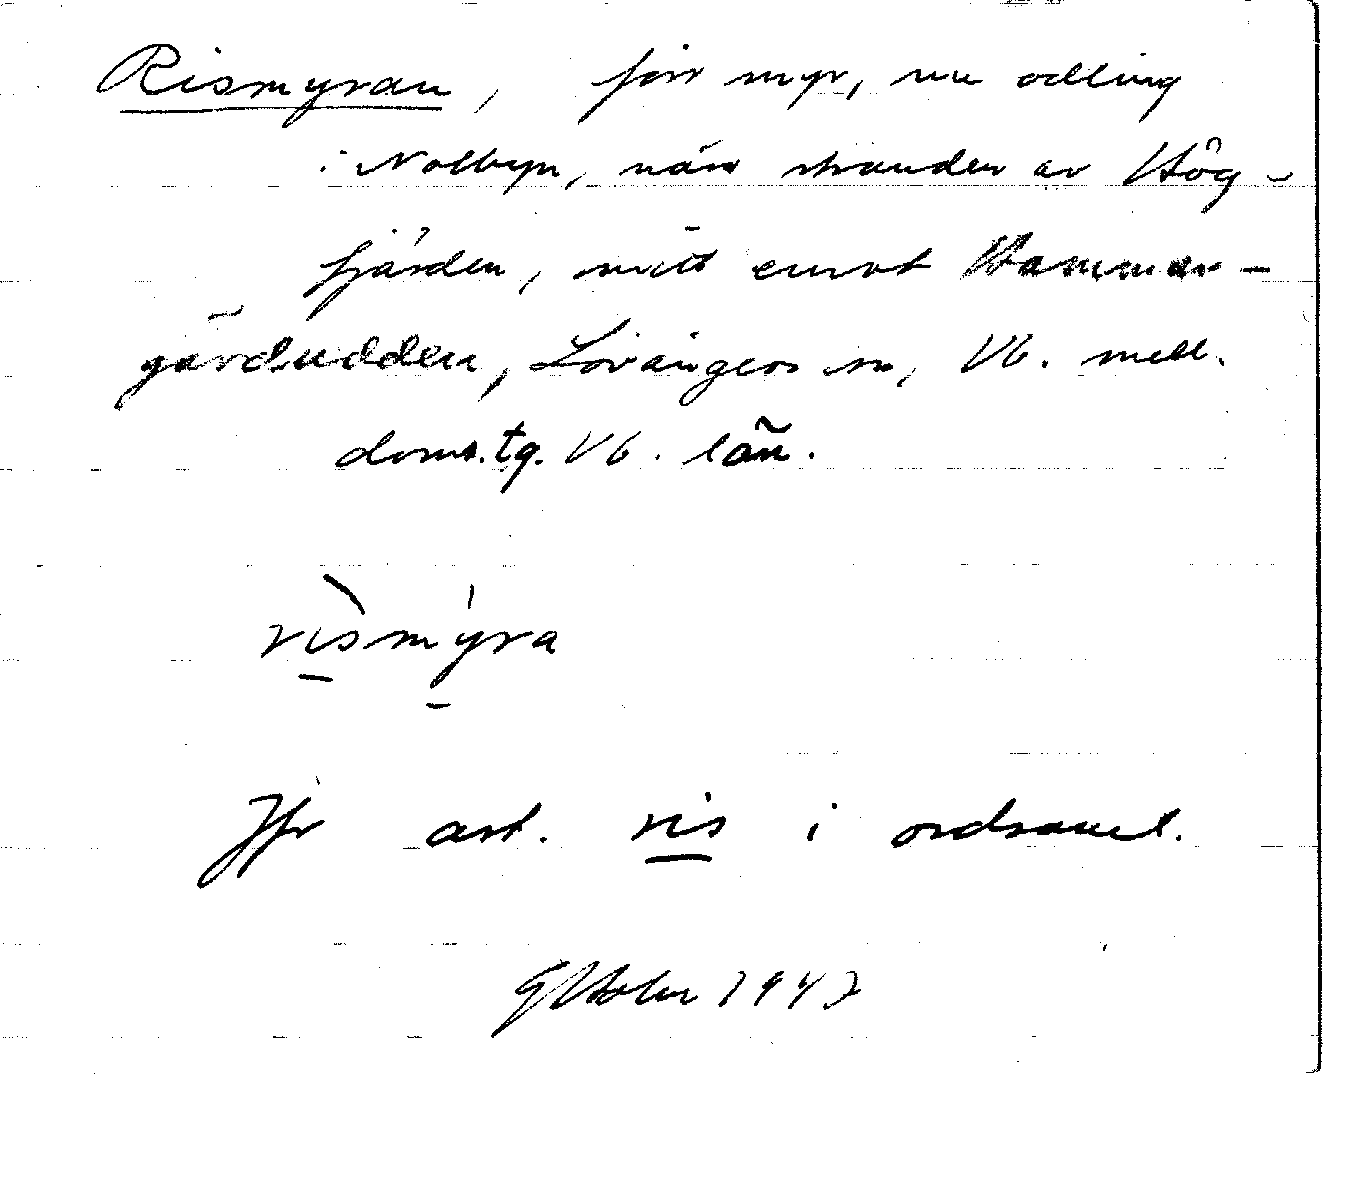 Rismyran, förr myr, nu odling
i Nolbyn, nära stranden av Hög-
fjärden, mitt emot Hammar-
gärdudden, Lövångers sn, Vb. mell.
doms.tg. Vb. län.
rìsmýra
Jfr art. ris i ordsaml.
GHolm 1947